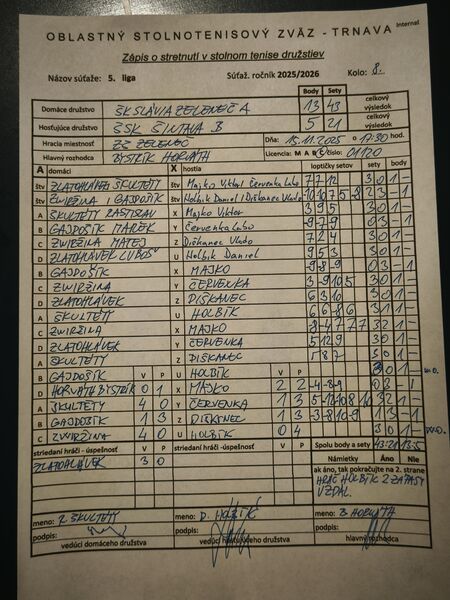 Internal
OBLASTNÝ STOLNOTENISOVÝ ZVÄZ - TRNAVA
Zápis o stretnutí v stolnom tenise družstiev
Názov súťaže: 5. liga Súťaž. ročník 2025/2026 Kolo: 8.
Body Sety
Domáce družstvo ŠK SLÁVIA ZELENEČ A 13 43 celkový výsledok
Hosťujúce družstvo ŠSK ŠINTAVA B 5 21 celkový výsledok
Hracia miestnosť ZŠ ZELENEČ Dňa: 15.11.2025 o 17:30 hod.
Hlavný rozhodca BYSTRÍK HORVÁTH Licencia: M A B C číslo: 01120
A domáci X hostia loptičky setov sety body
štv ZLATOHLÁVEK ŠKULTÉTY štv Majko Viktor Červenka Ľubo 7 7 12 3 0 1 -
štv ZWIRŽINA GAJDOŠÍK štv Holbík Daniel Diškanec Vlado
A ŠKULTÉTY RASTISLAV X Majko Viktor 3 9 5 3 0 1 -
B GAJDOŠÍK MAREK Y Červenka Ľubo -9 7 9 0 3 - 1
C ZWIRŽINA MATEJ Z Diškanec Vlado 7 2 4 3 0 1 -
D ZLATOHLÁVEK ĽUBOŠ U Holbík Daniel 9 5 3 3 0 1 -
B GAJDOŠÍK X MAJKO -9 8 9 0 3 - 1
C ZWIRŽINA Y ČERVENKA 3 -9 10 5 3 1 1 -
D ZLATOHLÁVEK Z DIŠKANEC 6 3 10 3 0 1 -
A ŠKULTÉTY U HOLBÍK 6 -6 8 6 3 1 1 -
C ZWIRŽINA X MAJKO 8 -4 7 -7 7 3 2 1 -
D ZLATOHLÁVEK Y ČERVENKA 5 12 9 3 0 1 -
A ŠKULTÉTY Z DIŠKANEC 5 8 7 3 0 1 -
B GAJDOŠÍK V P U HOLBÍK V P 3 0 1 - w.o.
D HORVÁTH BYSTRÍK 0 1 X MAJKO 2 2 -4 -8 -9 0 3 - 1
A ŠKULTÉTY 4 0 Y ČERVENKA 1 3 3 2 1 -
B GAJDOŠÍK 1 3 Z DIŠKANEC 1 3 -3 -8 10 -9 1 3 - 1
C ZWIRŽINA 4 0 U HOLBÍK 0 4 3 0 1 - w.o.
striedaní hráči - úspešnosť V P striedaní hráči - úspešnosť V P Spolu body a sety 43:21 13:5
ZLATOHLÁVEK 3 0 Námietky Áno Nie
ak áno, tak pokračujte na 2. strane
HRÁČ HOLBÍK 2 ZÁPASY
VZDAL.
meno: R. ŠKULTÉTY meno: D. HOLBÍK meno: B. HORVÁTH
podpis: podpis: podpis:
vedúci domáceho družstva vedúci hosťujúceho družstva hlavný rozhodca